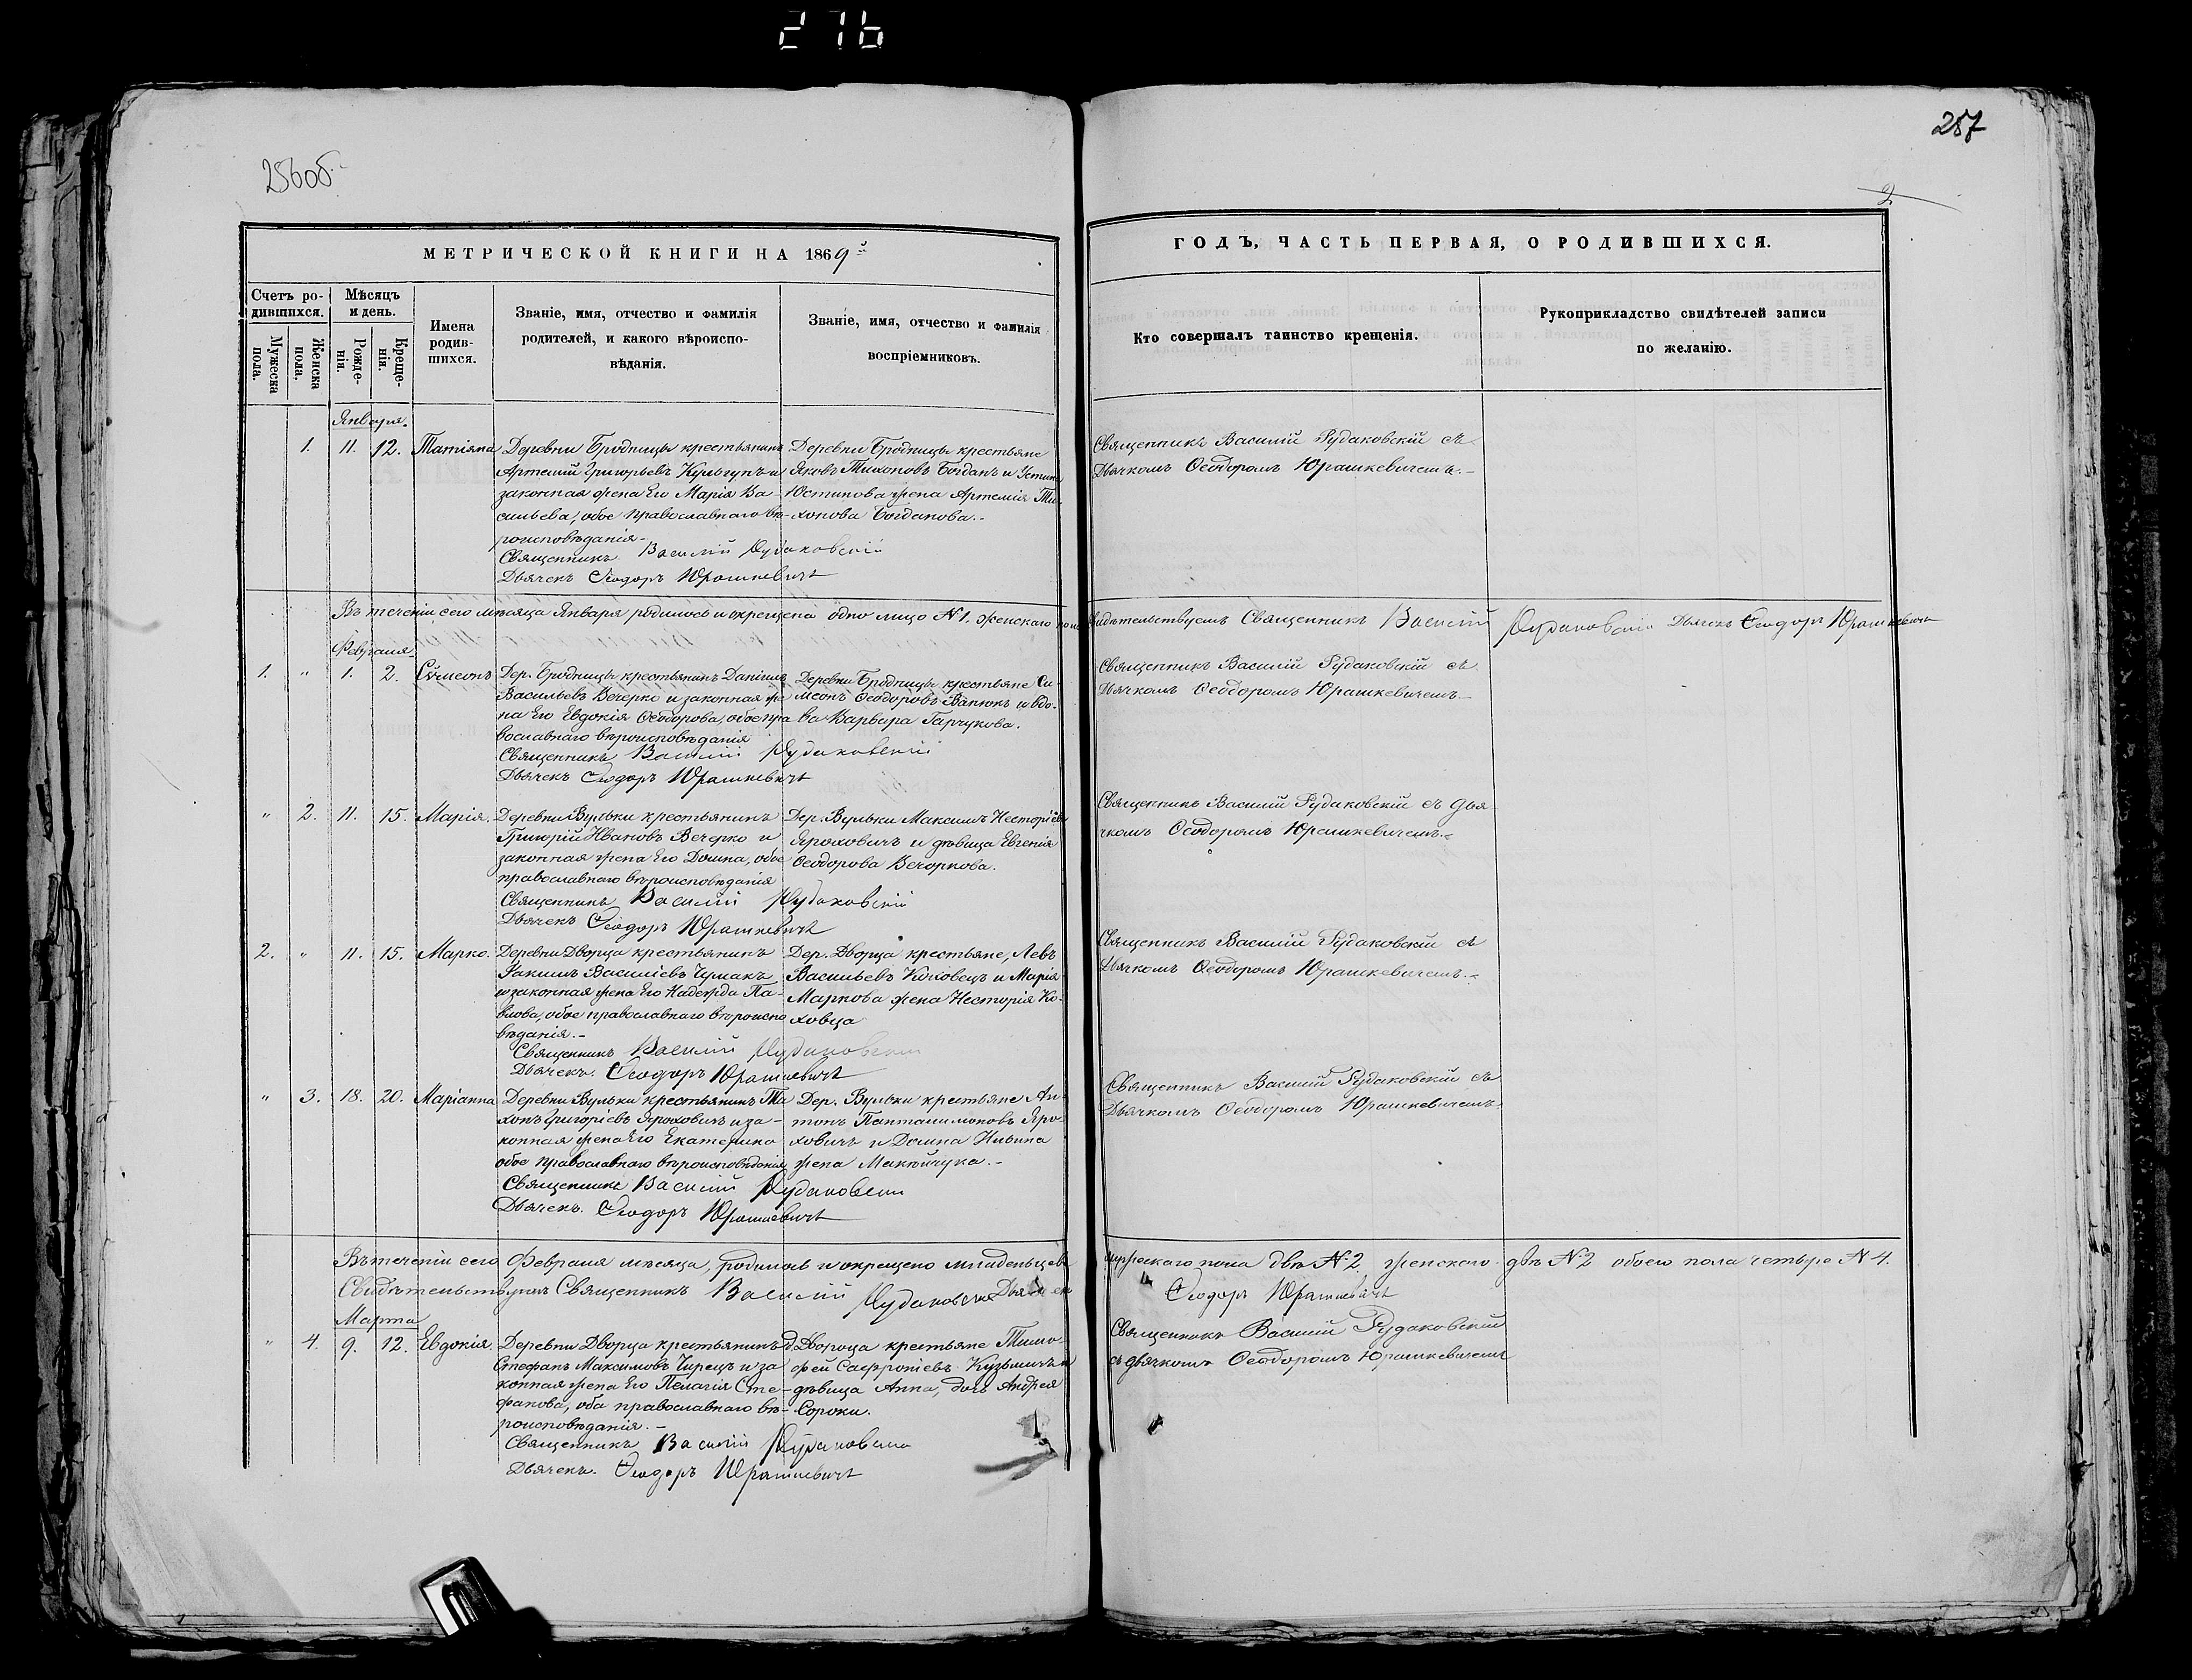 276
256об.
257
2
МЕТРИЧЕСКОЙ КНИГИ НА 1869й
ГОДЪ, ЧАСТЬ ПЕРВАЯ, О РОДИВШИХСЯ.
Счетъ ро-
дившихся.
Мужеска
пола.
Женска
пола.
Мѣсяцъ
и день.
Рожде-
нія.
Креще-
нія.
Имена
родив-
шихся.
Званіе, имя, отчество и фамилія
родителей, и какого вѣроиспо-
вѣданія.
Званіе, имя, отчество и фамилія
воспріемниковъ.
Кто совершалъ таинство крещенія.
Рукоприкладство свидѣтелей записи
по желанію.
Января.
1. 11. 12. Татіяна
Деревни Бродницы крестьянинъ
Артемій Григорьевъ и
законная жена Его Марія Ва-
сильева, обое православнаго вѣ-
роисповѣданія.-
Священникъ Василій Рудаковскій
Дьячекъ Ѳеодоръ Юрашкевичъ
Деревни Бродницы крестьяне
Яковъ Тихоновъ Богданъ и
Юстинова жена Артемія Ти-
хонова Богданова.-
Священникъ Василій Рудаковскій съ
Дьячкомъ Ѳеодоромъ Юрашкевичемъ.-
Въ теченіи сего мѣсяца Января родилось и окрещено одно лицо N 1. женскаго
Свидѣтельствуемъ Священникъ Василій Рудаковскій Дьячекъ Ѳеодоръ Юрашкевичъ
Февраля.
1. " 1. 2. Сѵмеонъ
Дер. Бродницы крестьянинъ Даніилъ
Васильевъ Вечерко и законная же-
на Его Евдокія Ѳеодорова, обое пра
вославнаго вѣроисповѣданія
Священникъ Василій Рудаковскій
Дьячекъ Ѳеодоръ Юрашкевичъ
Деревни Бродницы крестьяне Си-
меонъ Ѳеодоровъ Ванюкъ и вдо-
ва Варвара Гарчукова.
Священникъ Василій Рудаковскій съ
Дьячкомъ Ѳеодоромъ Юрашкевичемъ.-
" 2. 11. 15. Марія.
Деревни Вульки крестьянинъ
Григорій Ивановъ Вечерко и
законная жена Его Домна, обое
православнаго вѣроисповѣданія
Священникъ Василій Рудаковскій
Дьячекъ Ѳеодоръ Юрашкевичъ
Дер. Вульки Максимъ Несторіевъ
Яроховичъ и дѣвица Евгенія
Ѳеодорова Вечоркова.
Священникъ Василій Рудаковскій съ дья
чкомъ Ѳеодоромъ Юрашкевичемъ.-
2. " 11. 15. Марко.
Деревни Дворца крестьянинъ
Іакимъ Василіевъ
и законная жена Его Надежда Па-
влова, обое православнаго вѣроиспо
вѣданія.-
Священникъ Василій Рудаковскій
Дьячекъ. Ѳеодоръ Юрашкевичъ
Дер. Дворца крестьяне, Левъ
Васильевъ Коховецъ и Марія
Маркова жена Несторія Ко-
ховца
Священникъ Василій Рудаковскій съ
Дьячкомъ Ѳеодоромъ Юрашкевичемъ.-
" 3. 18. 20. Маріанна
Деревни Вульки крестьянинъ Ти
хонъ Григоріевъ Яроховичъ и за-
конная жена Его Екатерина
обое православнаго вѣроисповѣданія
Священникъ Василій Рудаковскій
Дьячекъ. Ѳеодоръ Юрашкевичъ
Дер. Вульки крестьяне Ан-
тонъ Панталимоновъ Яро-
ховичъ и Домна
жена
Священникъ Василій Рудаковскій съ
Дьячкомъ Ѳеодоромъ Юрашкевичемъ.
Въ теченіи сего Февраля мѣсяца, родилось и окрещено младенцевъ
мужескаго пола два N 2 женскаго двѣ N 2 обоего пола четыре N 4.
Свидѣтельствуемъ Священникъ Василій Рудаковскій Дьячекъ
Ѳеодоръ Юрашкевичъ
Марта
" 4. 9. 12. Евдокія.
Деревни Дворца крестьянинъ
Стефанъ Максимовъ и за
конная жена Его Пелагія Сте-
фанова, оба православнаго вѣ-
роисповѣданія.-
Священникъ Василій Рудаковскій
Дьячекъ. Ѳеодоръ Юрашкевичъ
д. Дворца крестьяне Тимо-
фей Сафроніевъ Кузьмичъ и
дѣвица Анна, дочь Андрея
Сороки.
Священникъ Василій Рудаковскій
съ дьячкомъ Ѳеодоромъ Юрашкевичемъ